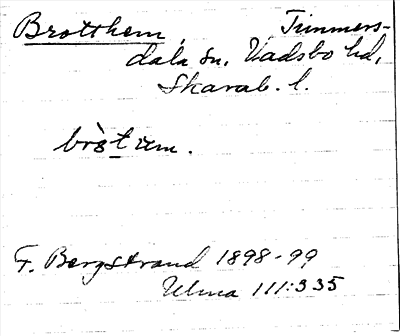 Brotthem, Timmers-
dala sn, Vadsbo hd,
Skarab. l.
bròt em.
F. Bergstrand 1898-99
Ulma 111:335